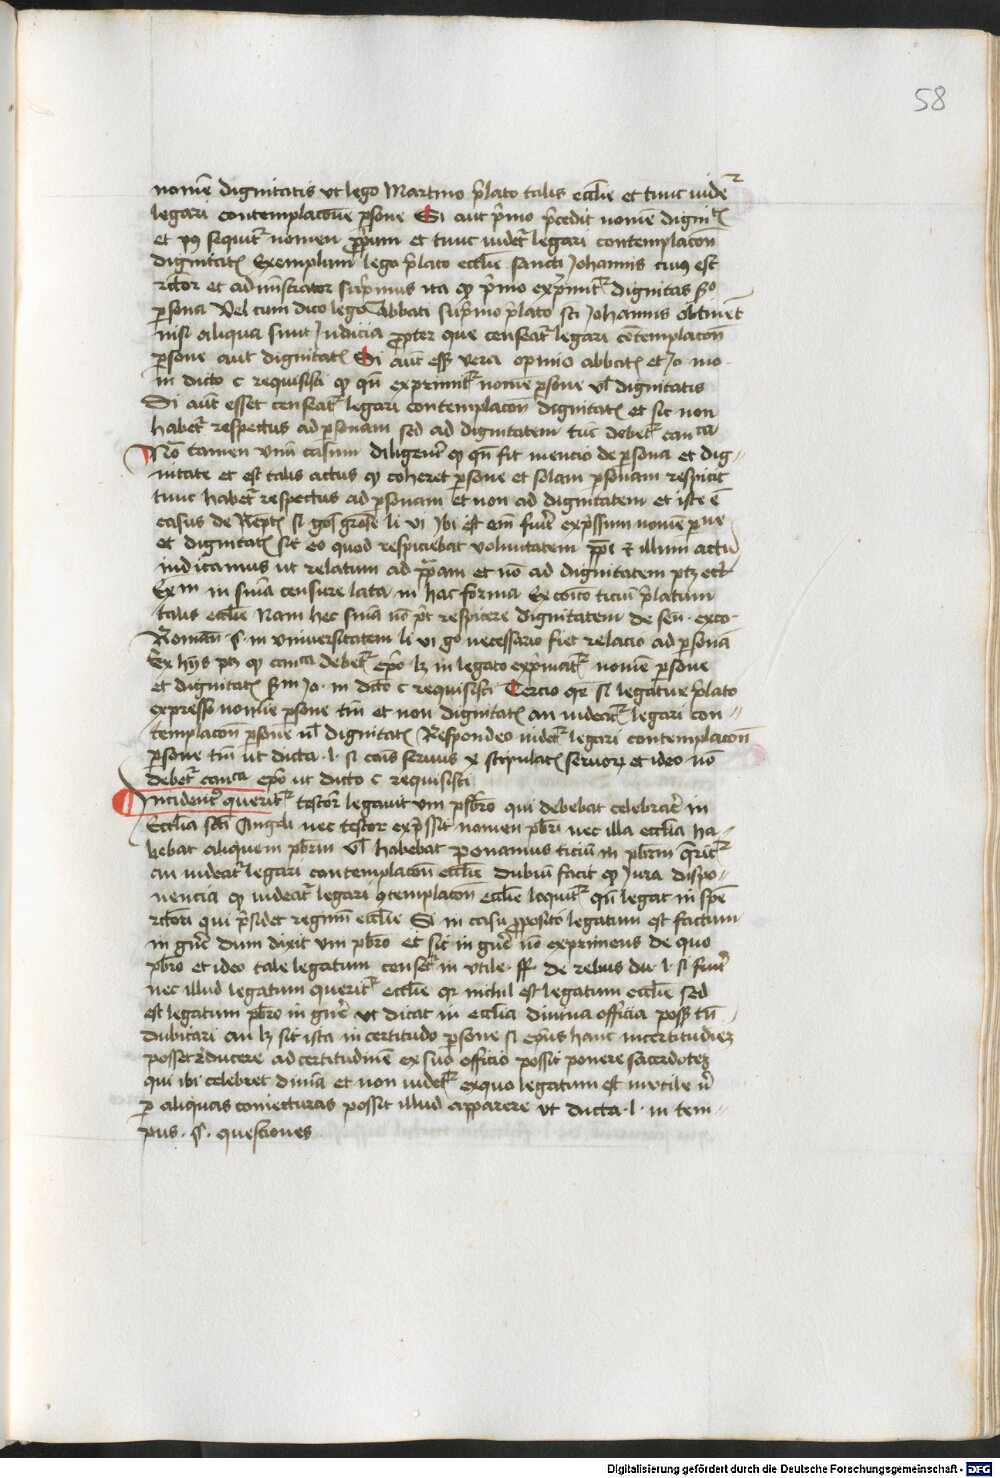 58
nomē dignitatis vt lego Martino p̄lato talis eccl̄ie et tunc videt᷑
legari contemplac̄one ꝑsone Si aut p̄mo p̄cedit nomē dignit̄
et p9 sequit᷑ nomen ꝓpium et tunc videt᷑ legari contemplac̄on
dignitat̄ Exemplum lego p̄lato eccl̄ie sancti Johannis cui9 est
rc̄tor et administrator sup̄mus ita ꝙ p̄mo exp̄mit᷑ dignitas
ꝑsona Vel cum dico lego Abbati sup̄mo p̄lato sc̄i Johannis obtinet
nisi aliqua sint Judicia ꝓpter que censeat᷑ legari cōtemplac̄on
ꝑsone aut dignitat̄ Si aut̄ ess; vera opinio abbat̄ et Jo mo
in dicto c requisisti ꝙ qn̄ exprimit᷑ nomē ꝑsone vl̄ dignitatis
Si aut̄ esset censeat᷑ legari contemplac̄on dignitat̄ et sic non
habet᷑ respectus ad ꝑsonam sed ad dignitatem tūc debet᷑ can̄ca
No tamen vnū casum diligent᷑ ꝙ qn̄ fit mencio de ꝑsona et dig-
nitate et est talis actus ꝙ coheret ꝑsone et solam ꝑsonam respicit
tunc habet᷑ respectus ad ꝑsonam et non ad dignitatem et iste ē
casus de Rept̄ si li vi Ibi est em̄ exp̄ssum nomē
et dignitat̄ sic eo quod respiciebat voluntatem et illum actū
iudicamus ut relatum ad et nō ad dignitatem
Exm̄ in sn̄ia censure lata in hac forma Ex coīco ticiū p̄latum
talis eccl̄ie Nam hec sn̄ia nō pt̄ respicere dignitatem de sen̄ exco
Roman̄ · S · in Vniversitatem li vi go necessario fiet relacio ad ꝑsonā
Ex hijs ptꝫ ꝙ can̄ca debet᷑ ep̄o lꝫ in legato exp̄mat᷑ nomē ꝑsone
et dignitat̄ sm̄ Jo · in dicto c requisisti Tercio qr̄ si legatur p̄lato
expresso nomīe ꝑsone tm̄ et non dignitat̄ an videat᷑ legari con-
templac̄on ꝑsone vl̄ dignitat̄ Respondeo videt᷑ legari contemplac̄on
ꝑsone tm̄ ut dicta · l · si cōis servus stipulat̄ servoꝝ et ideo nō
debet᷑ can̄ca ep̄o ut dicto c requisisti
Incident᷑ querit᷑ testor legauit vni p̄sbro qui debebat celebrar̄ in
Ecclesia sc̄ti Angeli nec testor exp̄ssit nomen pb̄ri nec illa eccl̄ia ha-
bebat aliquem pb̄rm vl̄ habebat Ponamus ticiū in pb̄rm q̄rit᷑
an videat᷑ legari contemplac̄on eccl̄ie dubiū facit ꝙ Jura dispo-
nencia ꝙ videat᷑ legari ꝯtemplac̄on eccl̄ie loquit᷑ qn̄ legat in spē
rc̄tori qui p̄sidet regimī eccl̄ie Si in casu ꝓposito legatum est factum
in gn̄e dum dixit vni pb̄ro et sic in gn̄e nō exprimens de quo
pb̄ro et ideo tale legatum censet᷑ in vtile · ff · de rebus du · l · si fuer̄
nec illud legatum querit᷑ eccl̄ie qr nichil est legatum eccl̄ie sed
est legatum pb̄ro in gn̄e Vt dicat in eccl̄ia diuina officia poss; tn̄
dubitari an lꝫ sit ista incertitudo ꝑsone si ep̄us hanc incertitudinē
posset reducere ad certitudinē ex suo officio possit ponere sacerdotē
qui ibi celebret diuīa et non videt᷑ exquo legatum est invtile
ꝑ aliquas coniecturas possit illud apparere vt dicta · l · in tem-
pus · S · questiones
Digitalisierung gefördert durch die Deutsche Forschungsgemeinschaft - DFG